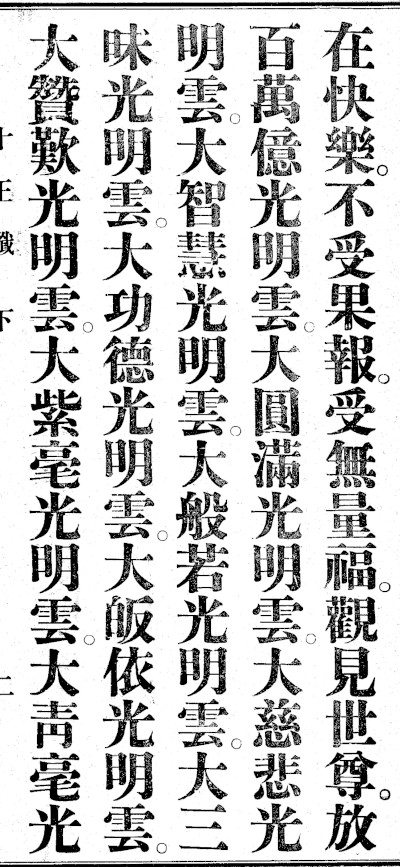 在快樂。不受果報。受無量福。觀見世尊。放
百萬億光明雲。大圓滿光明雲。大慈悲光
明雲。大智慧光明雲。大般若光明雲。大三
昧光明雲。大功德光明雲。大皈依光明雲。
大贊歎光明雲。大紫毫光明雲。大青毫光
十王懺 下